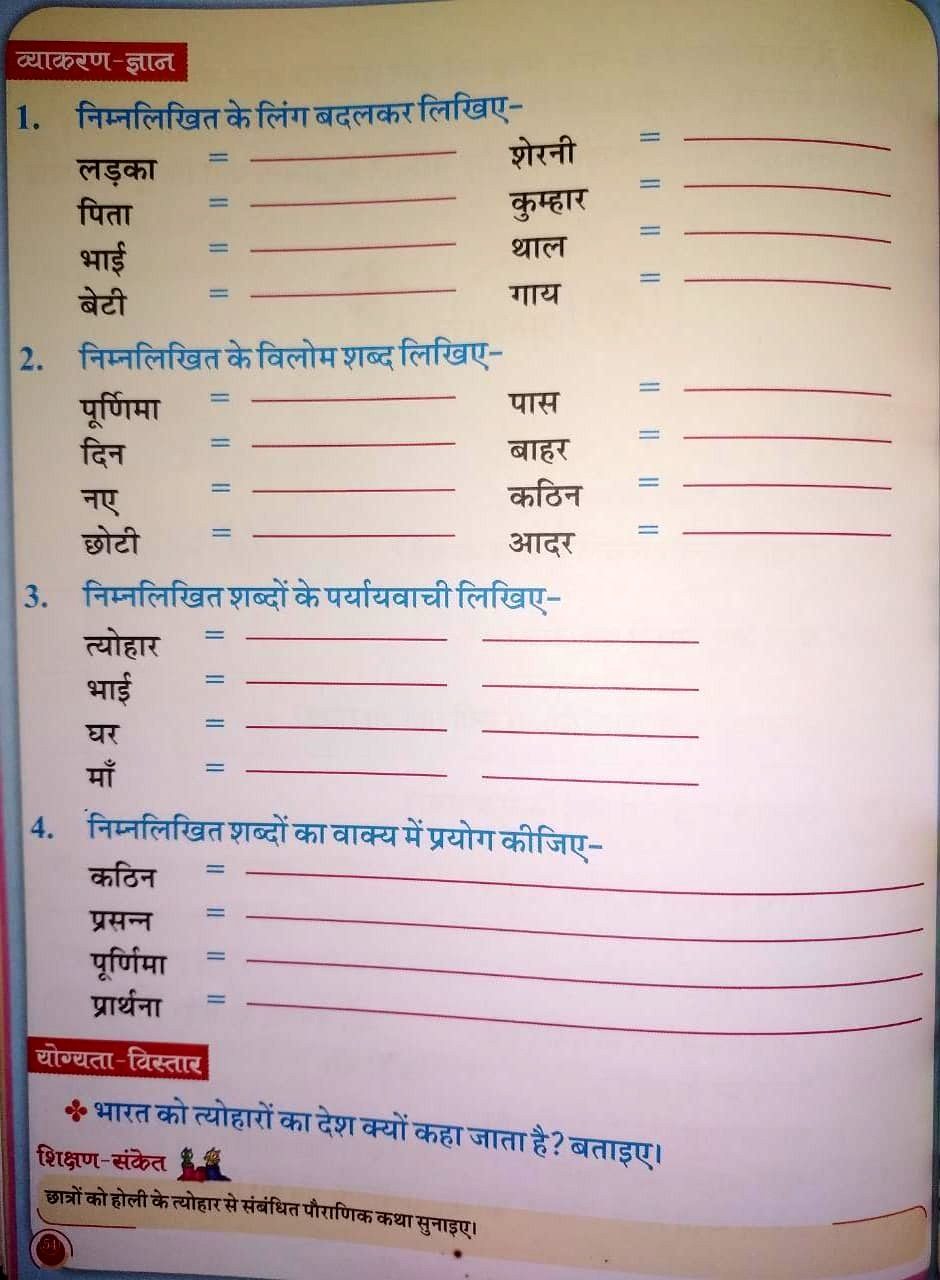 व्याकरण-ज्ञान
1. निम्नलिखित के लिंग बदलकर लिखिए-
लड़का = शेरनी =
पिता = कुम्हार =
भाई = थाल =
बेटी = गाय =
2. निम्नलिखित के विलोम शब्द लिखिए-
पूर्णिमा = पास =
दिन = बाहर =
नए = कठिन =
छोटी = आदर =
3. निम्नलिखित शब्दों के पर्यायवाची लिखिए-
त्योहार =
भाई =
घर =
माँ =
4. निम्नलिखित शब्दों का वाक्य में प्रयोग कीजिए-
कठिन =
प्रसन्न =
पूर्णिमा =
प्रार्थना =
योग्यता-विस्तार
भारत को त्योहारों का देश क्यों कहा जाता है? बताइए।
शिक्षण-संकेत
छात्रों को होली के त्योहार से संबंधित पौराणिक कथा सुनाइए।